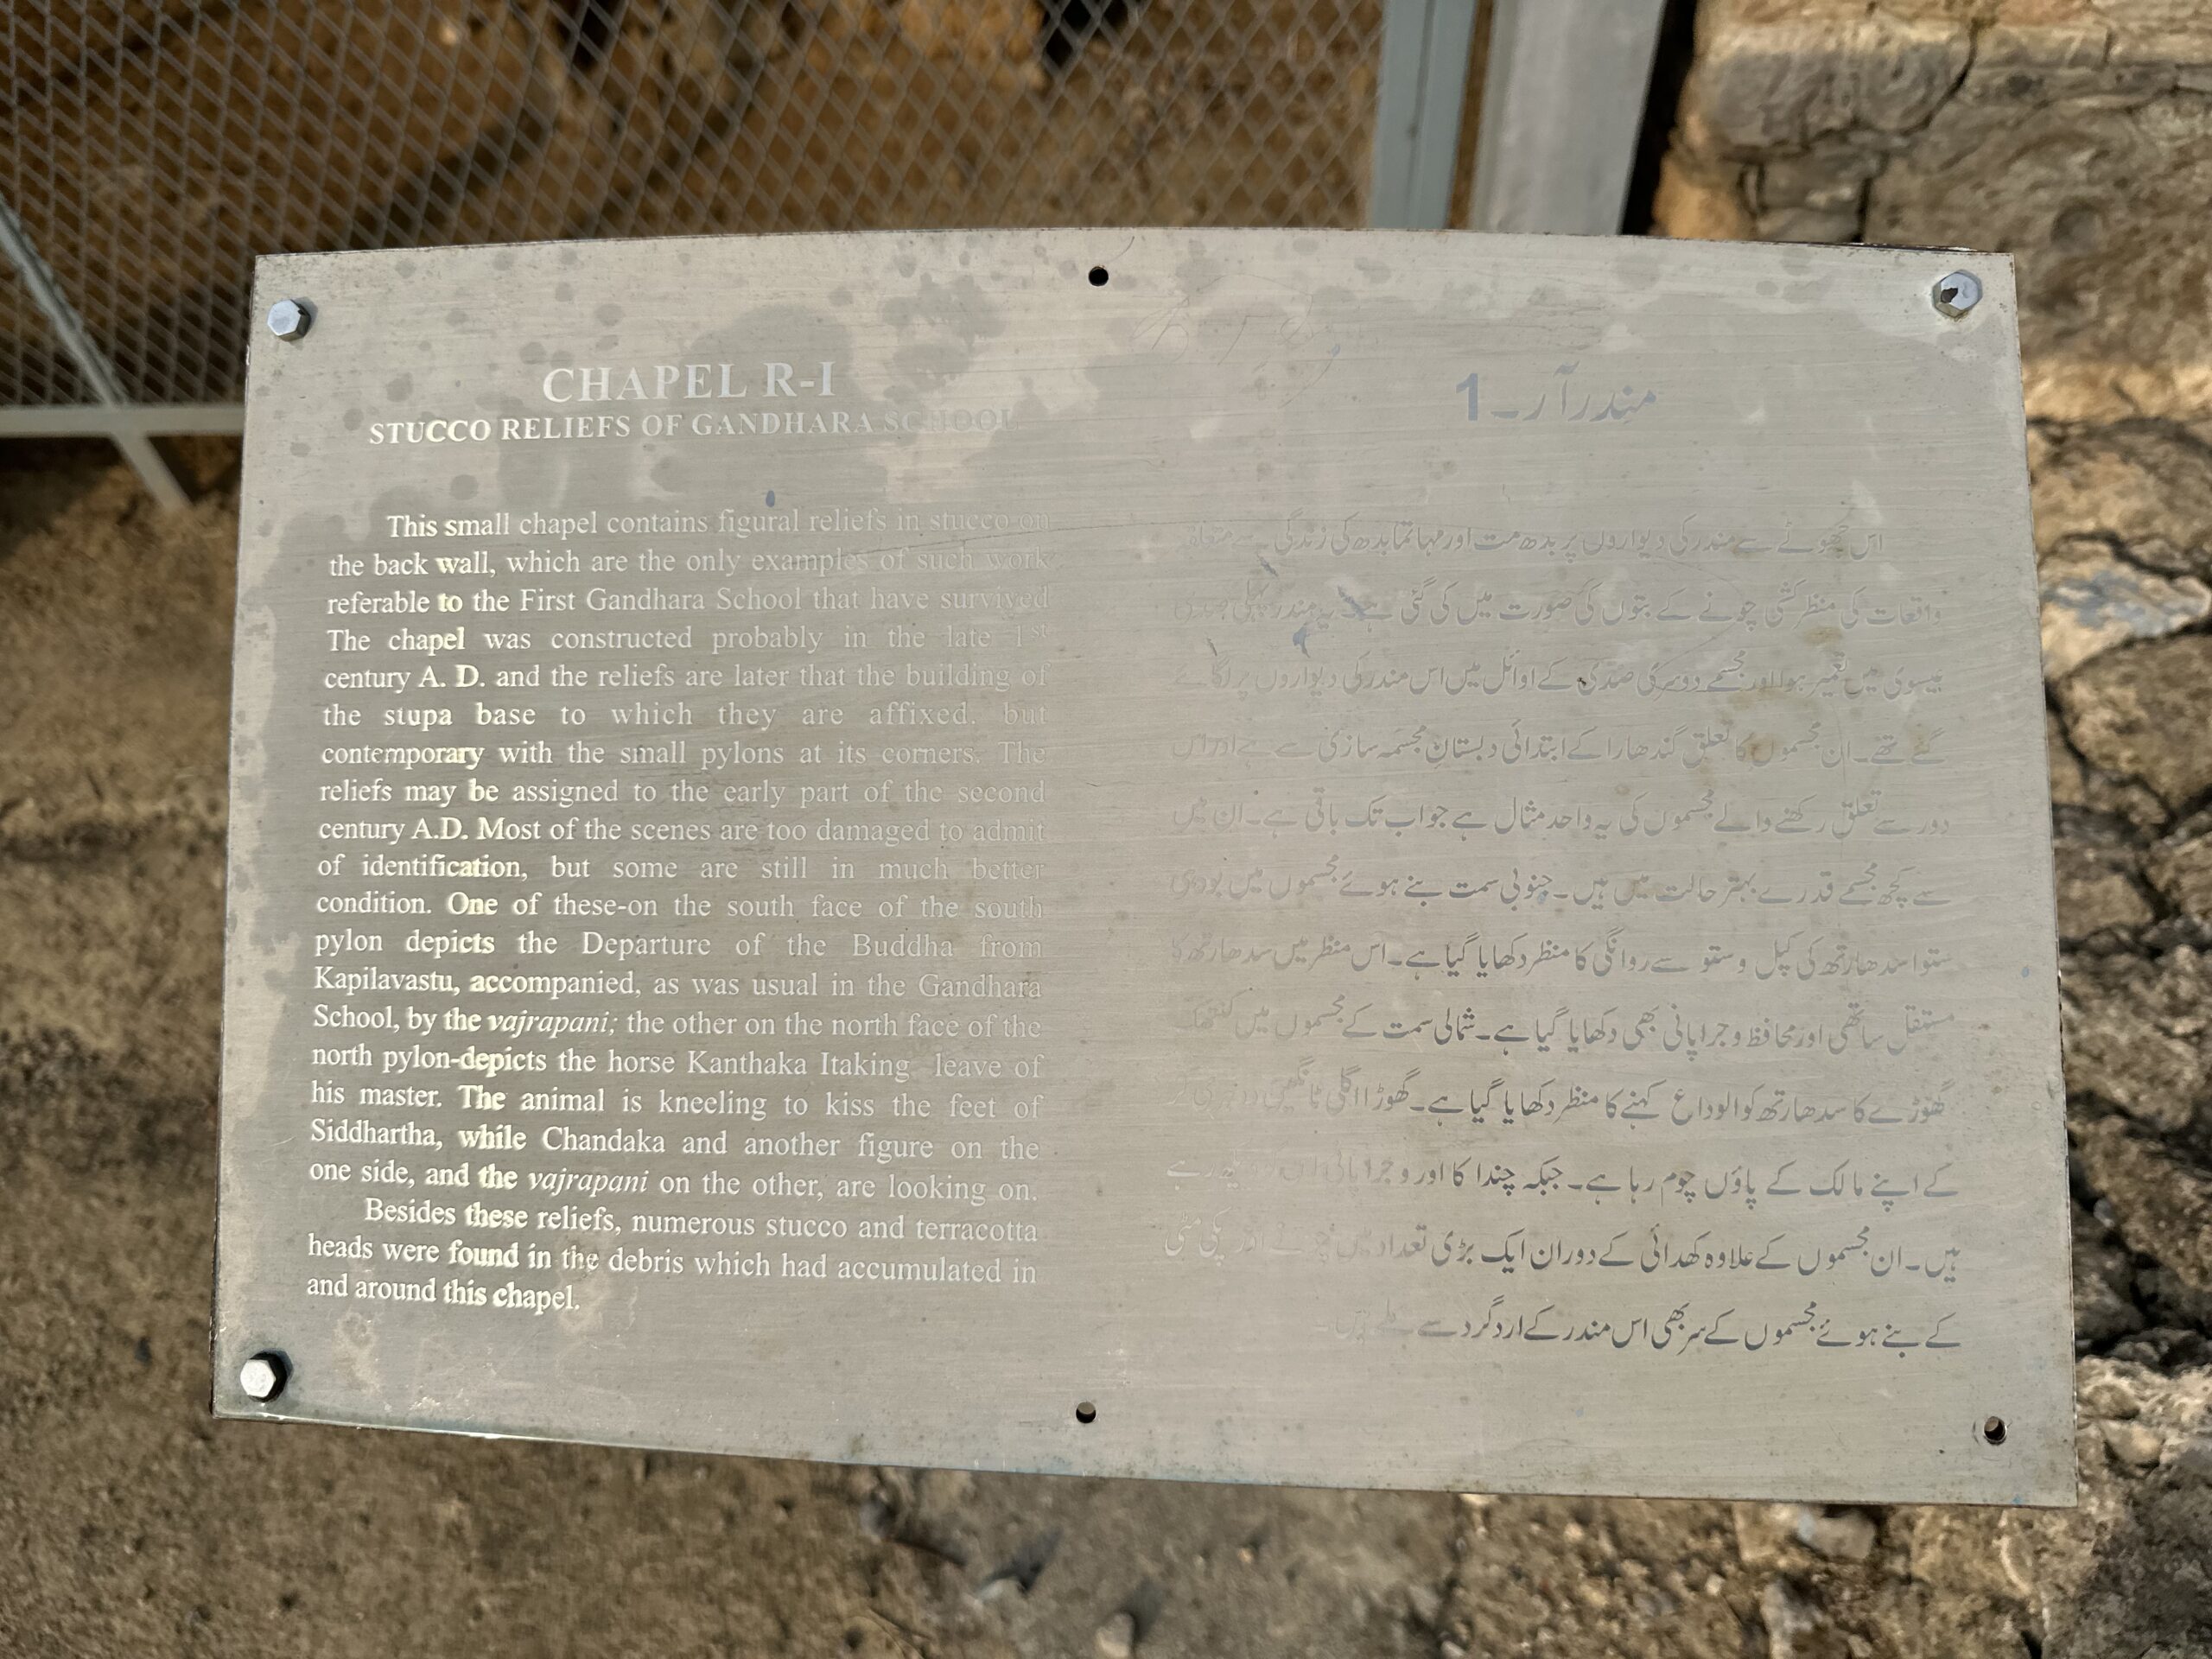 CHAPEL R-I
STUCCO RELIEFS OF GANDHARA SCHOOL
This small chapel contains figural reliefs in stucco on
the back wall, which are the only examples of such work
referable to the First Gandhara School that have survived
The chapel was constructed probably in the late 1st
century A. D. and the reliefs are later that the building of
the stupa base to which they are affixed, but
contemporary with the small pylons at its corners. The
reliefs may be assigned to the early part of the second
century A.D. Most of the scenes are too damaged to admit
of identification, but some are still in much better
condition. One of these-on the south face of the south
pylon depicts the Departure of the Buddha from
Kapilavastu, accompanied, as was usual in the Gandhara
School, by the vajrapani; the other on the north face of the
north pylon-depicts the horse Kanthaka Itaking leave of
his master. The animal is kneeling to kiss the feet of
Siddhartha, while Chandaka and another figure on the
one side, and the vajrapani on the other, are looking on.
Besides these reliefs, numerous stucco and terracotta
heads were found in the debris which had accumulated in
and around this chapel.
مندر آر۔1
اس چھوٹے سے مندر کی دیواروں پر بدھ مت اور مہاتما بدھ کی زندگی سے متعلق
واقعات کی منظر کشی چونے کے بتوں کی صورت میں کی گئی ہے۔ یہ مندر پہلی صدی
عیسوی میں تعمیر ہوا اور مجسمے دوسری صدی کے اوائل میں اس مندر کی دیواروں پر لگائے
گئے تھے۔ ان مجسموں کا تعلق گندھارا کے ابتدائی دبستانِ مجسمہ سازی سے ہے اور اس
دور سے تعلق رکھنے والے مجسموں کی یہ واحد مثال ہے جو اب تک باقی ہے۔ ان میں
سے کچھ مجسمے قدرے بہتر حالت میں ہیں۔ جنوبی سمت بنے ہوئے مجسموں میں بودھی
ستوا سدھارتھ کی کپل وستو سے روانگی کا منظر دکھایا گیا ہے۔ اس منظر میں سدھارتھ کا
مستقل ساتھی اور محافظ وجراپانی بھی دکھایا گیا ہے۔ شمالی سمت کے مجسموں میں کنتھکا
گھوڑے کا سدھارتھ کو الوداع کہنے کا منظر دکھایا گیا ہے۔ گھوڑا اگلی ٹانگیں
کے اپنے مالک کے پاؤں چوم رہا ہے۔ جبکہ چندا کا اور وجراپانی رہے
ہیں۔ ان مجسموں کے علاوہ کھدائی کے دوران ایک بڑی تعداد میں اور پکی مٹی
کے بنے ہوئے مجسموں کے سر بھی اس مندر کے اردگرد سے ملے ہیں۔